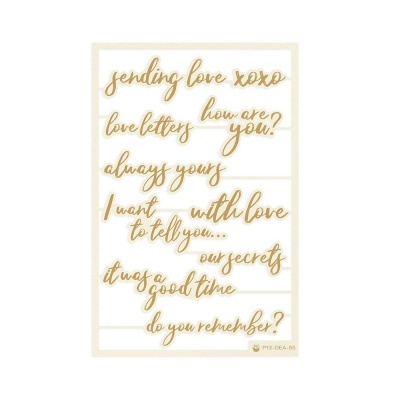 sending love xoxo
how are
love letters you?
always yours
I want with love
to tell you...
our secrets
it was a
good time
do you remember?
P13-DEA-95